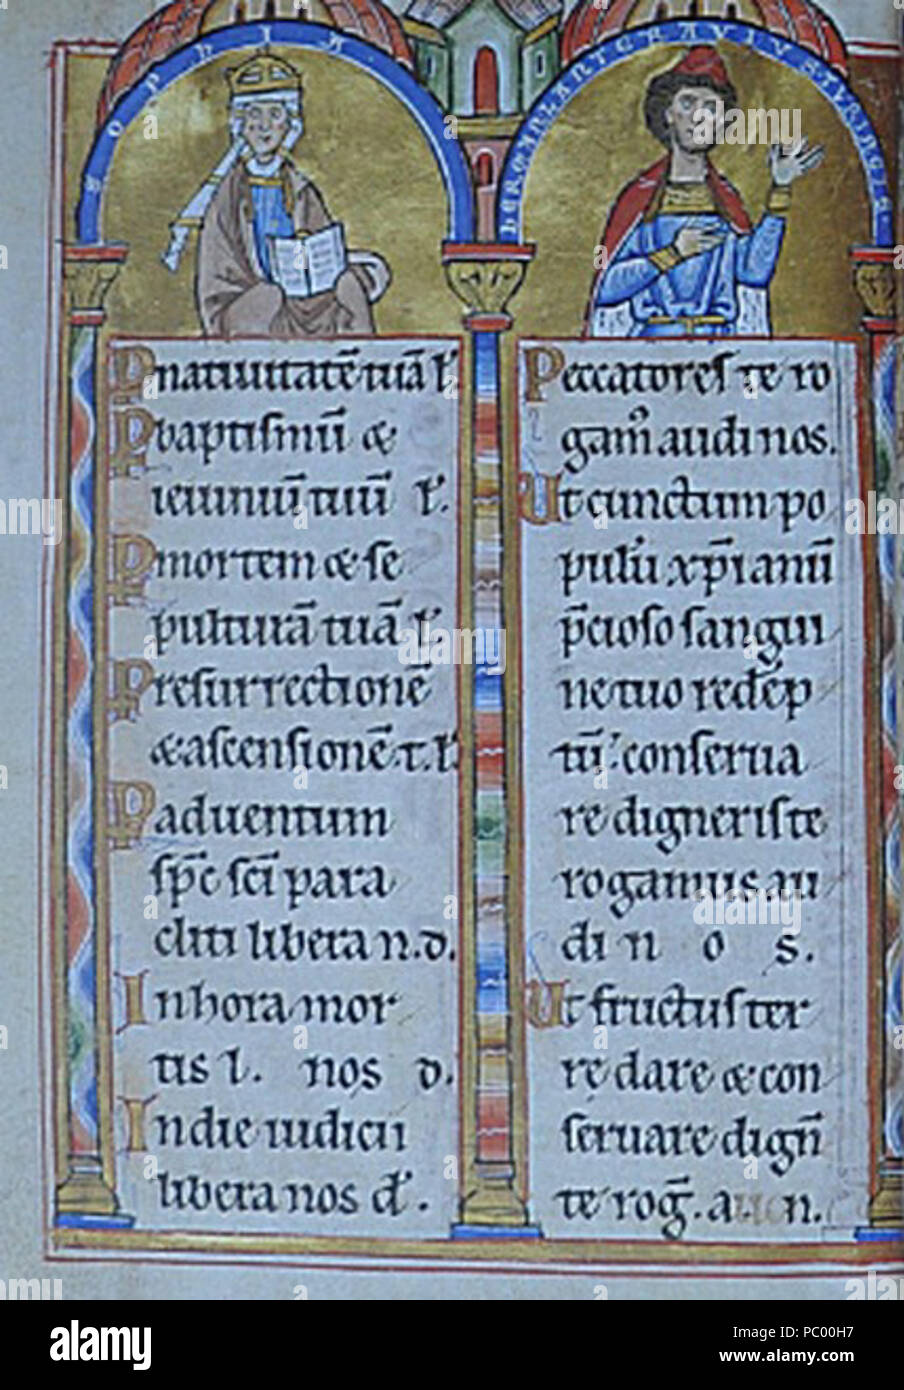 SOPHIA
hERMAN LANTGRAVIVS TVRINGIE
P natiuitatē tuā l̄.
P baptismū &
ieiuniū tuū l̄.
P mortem & se
pulturā tuā l̄.
P resurrectionē
& ascensionē.t.l̄.
P aduentum
sp̄c sc̄i para
cliti libera n.d.
In hora mor
tis l. nos d.
In die iudicii
libera nos d̄.
Peccatores te ro
gam̄ audi nos.
Ut cunctum po
pulū xp̄ianū
p̄cioso sangui
ne tuo redēp
tū conserua
re digneris te
rogamus.au
di n o s.
Ut fructus ter
rę dare & con
seruare dign̄
te roḡ.a n.
alamy
Image ID: PC00H7
www.alamy.com